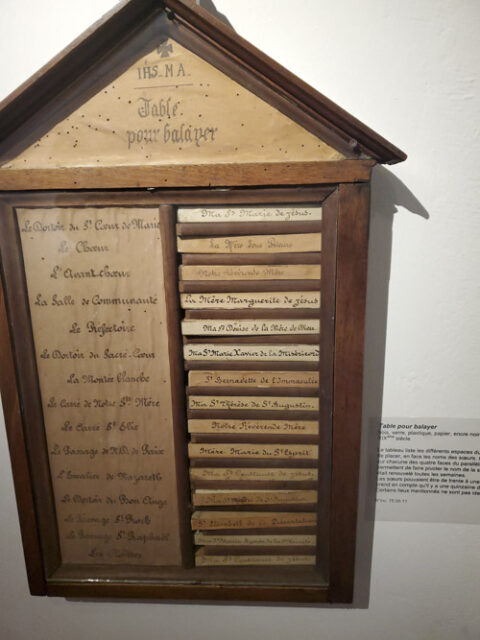 IHS. M A.
Table
pour balayer
Le Dortoir du St Cœur de Marie
Le Chœur
L'Avant Chœur
La Salle de Communauté
Le Réfectoire
Le Dortoir du Sacré-Cœur
La Montée blanche
Le Carré de Notre Ste Mère
Le Carré St Elie
Le Passage de N.D. de Paix
L'Escalier de Nazareth
Le Dortoir du Bon Ange
Le Passage St
Le Passage St Raphaël
Les
Ma Sr Marie de Jésus.
La Mère Sous Prieure
Notre Révérende Mère
La Mère Marguerite de Jésus
Ma Sr Louise de la Mère de Dieu
Ma Sr Marie Xavier de la Miséricorde
Sr Bernadette de l'Immaculée
Ma Sr Thérèse de St Augustin.
Notre Révérende Mère
Mère Marie du St Esprit
Ma Sr Constance de Jésus
Ma Sr
Sr Elisabeth de la
Ma Sr Marie
Ma Sr Constance de Jésus
Table pour balayer
verre, plastique, papier, encre
XIXème siècle
tableau liste les différents espaces du
placer, en face les noms des sœurs.
chacune des quatre faces du
permettent de faire pivoter le nom de la
était renouvelé toutes les semaines.
sœurs pouvaient être de trente à
rend en compte qu'il y a une quinzaine
Certains lieux mentionnés ne sont pas